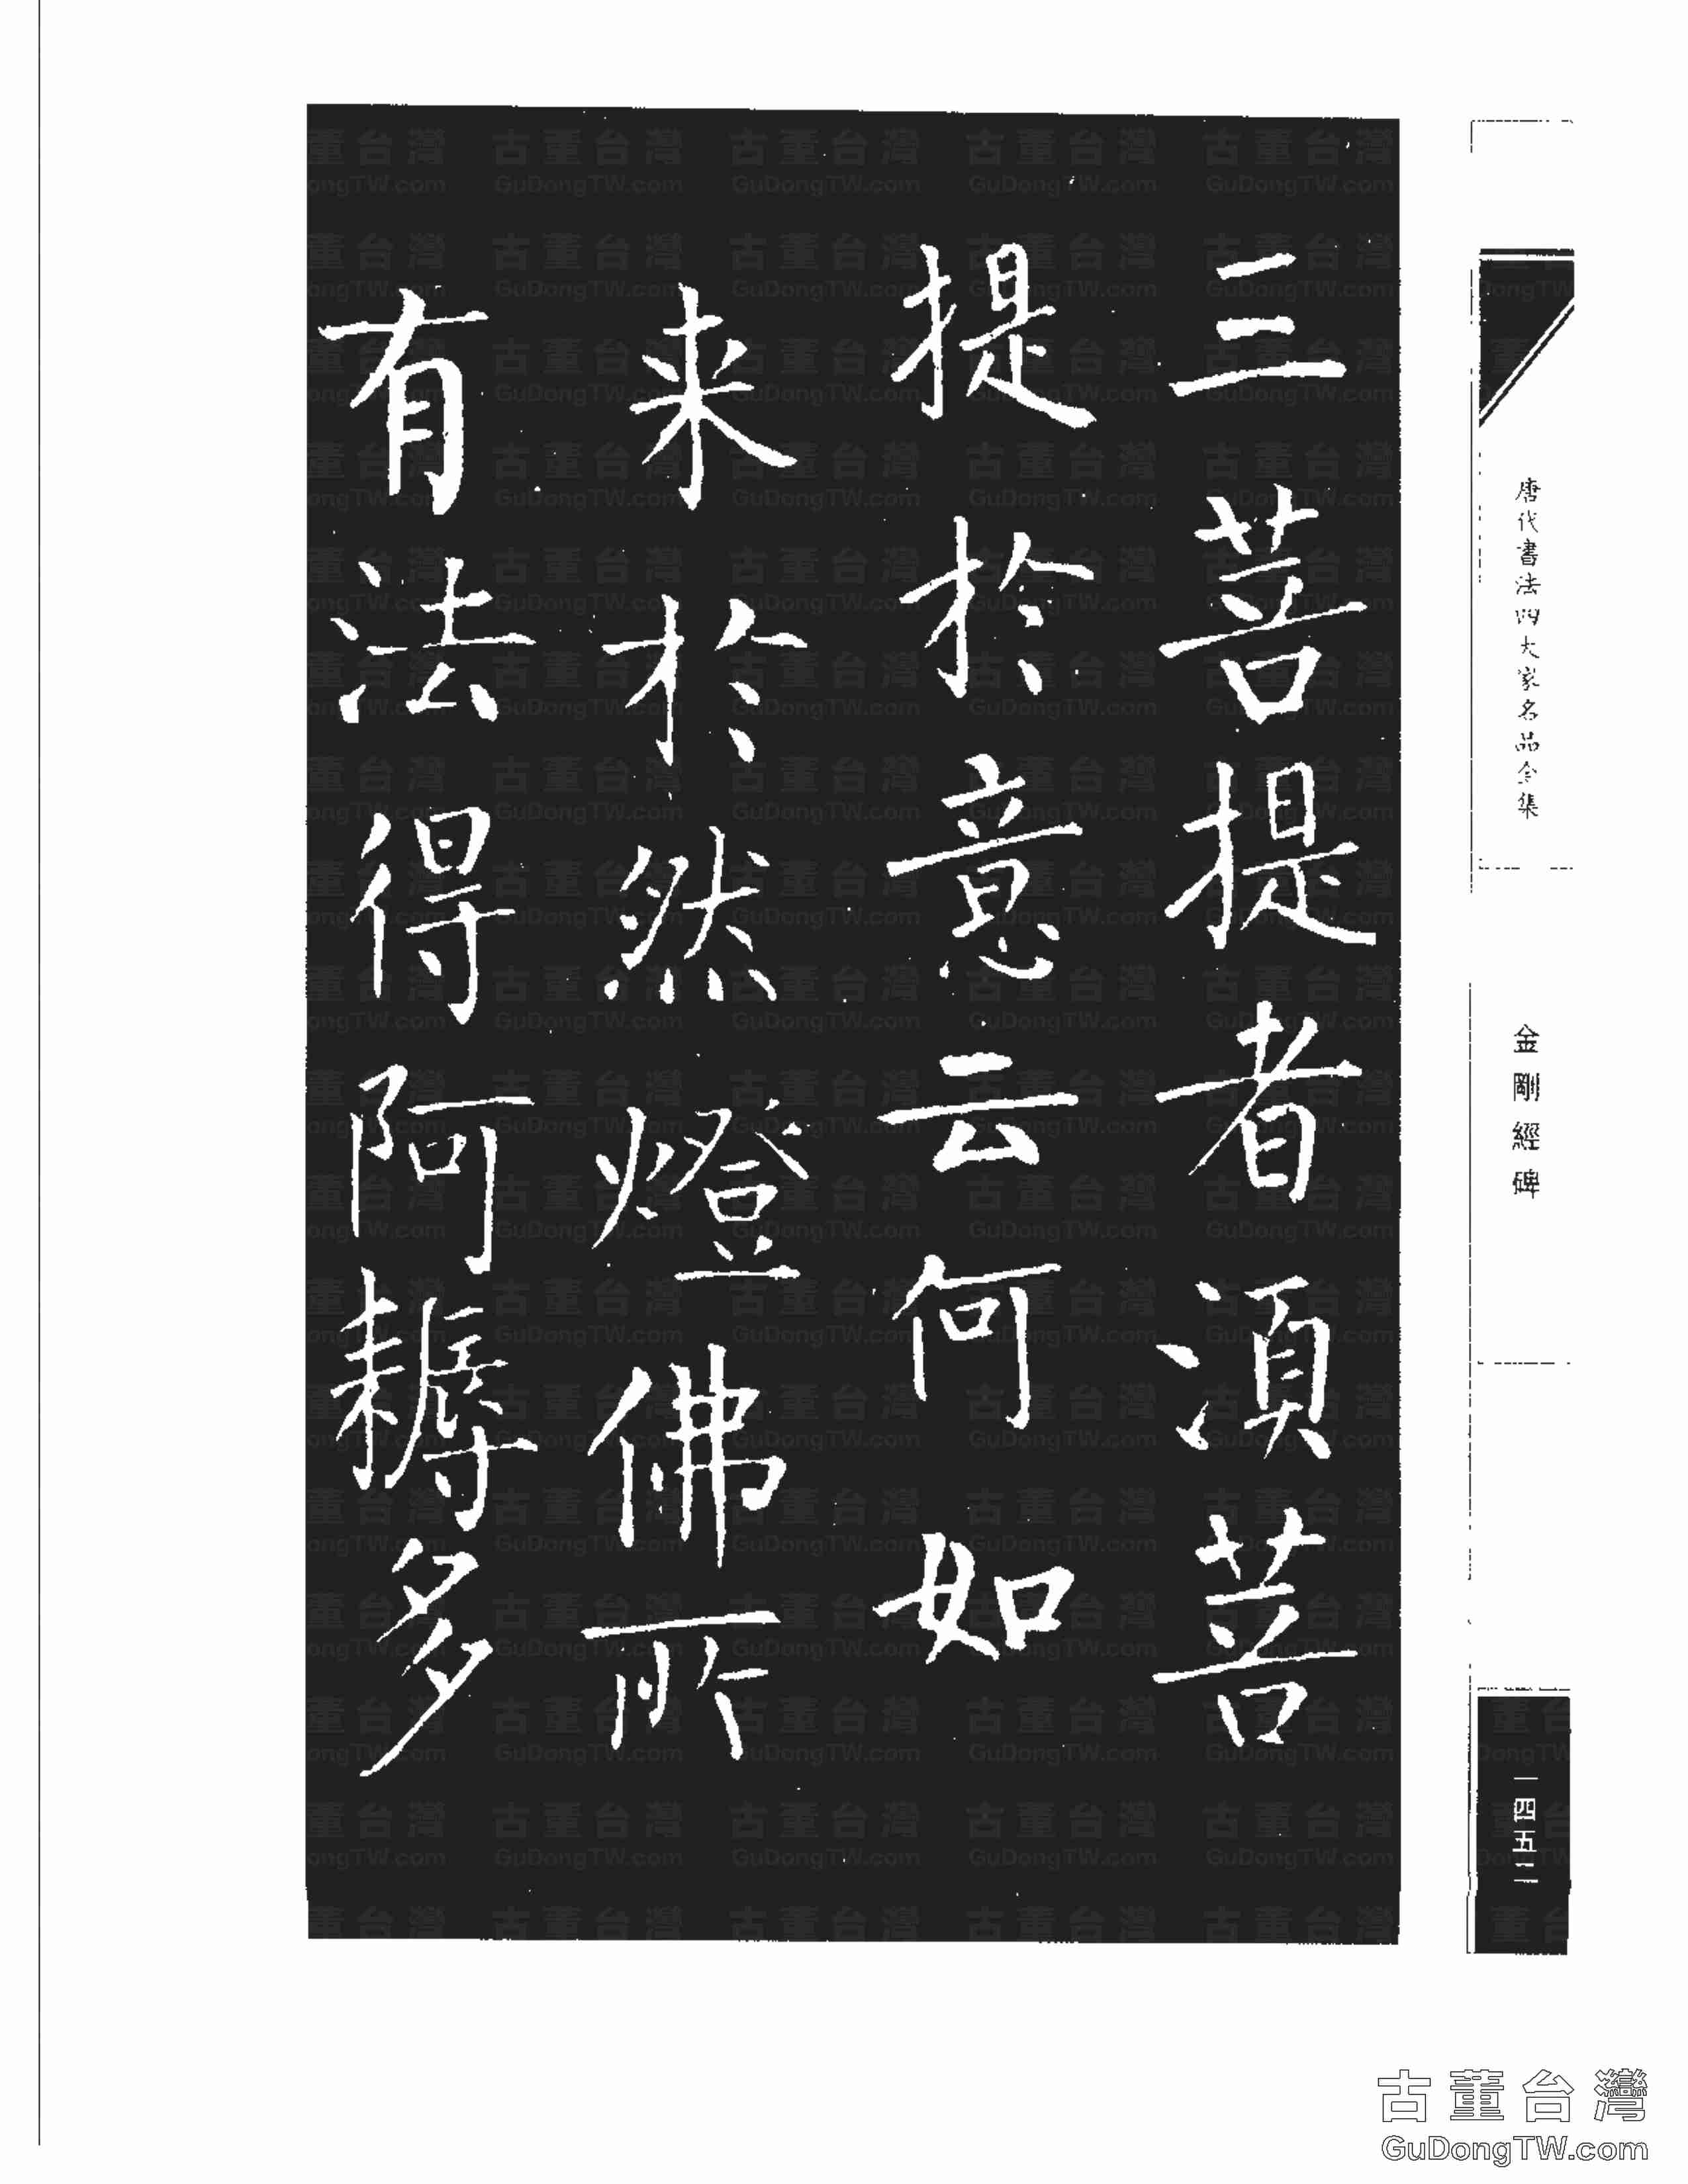 三菩提者須菩
提於意云何如
来於然燈佛所
有法得阿耨多
唐代書法四大家名品全集
金剛經碑
一四五二
古董台灣
GuDongTW.com